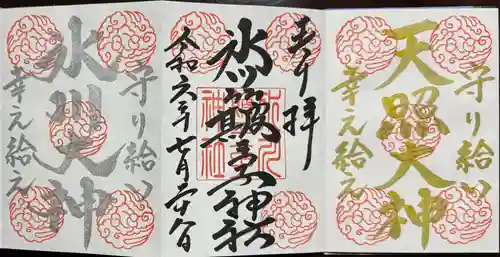 守り給い
天照大神
幸え給え
奉拝
氷川
神社
令和六年七月
守り給い
氷川大神
幸え給え